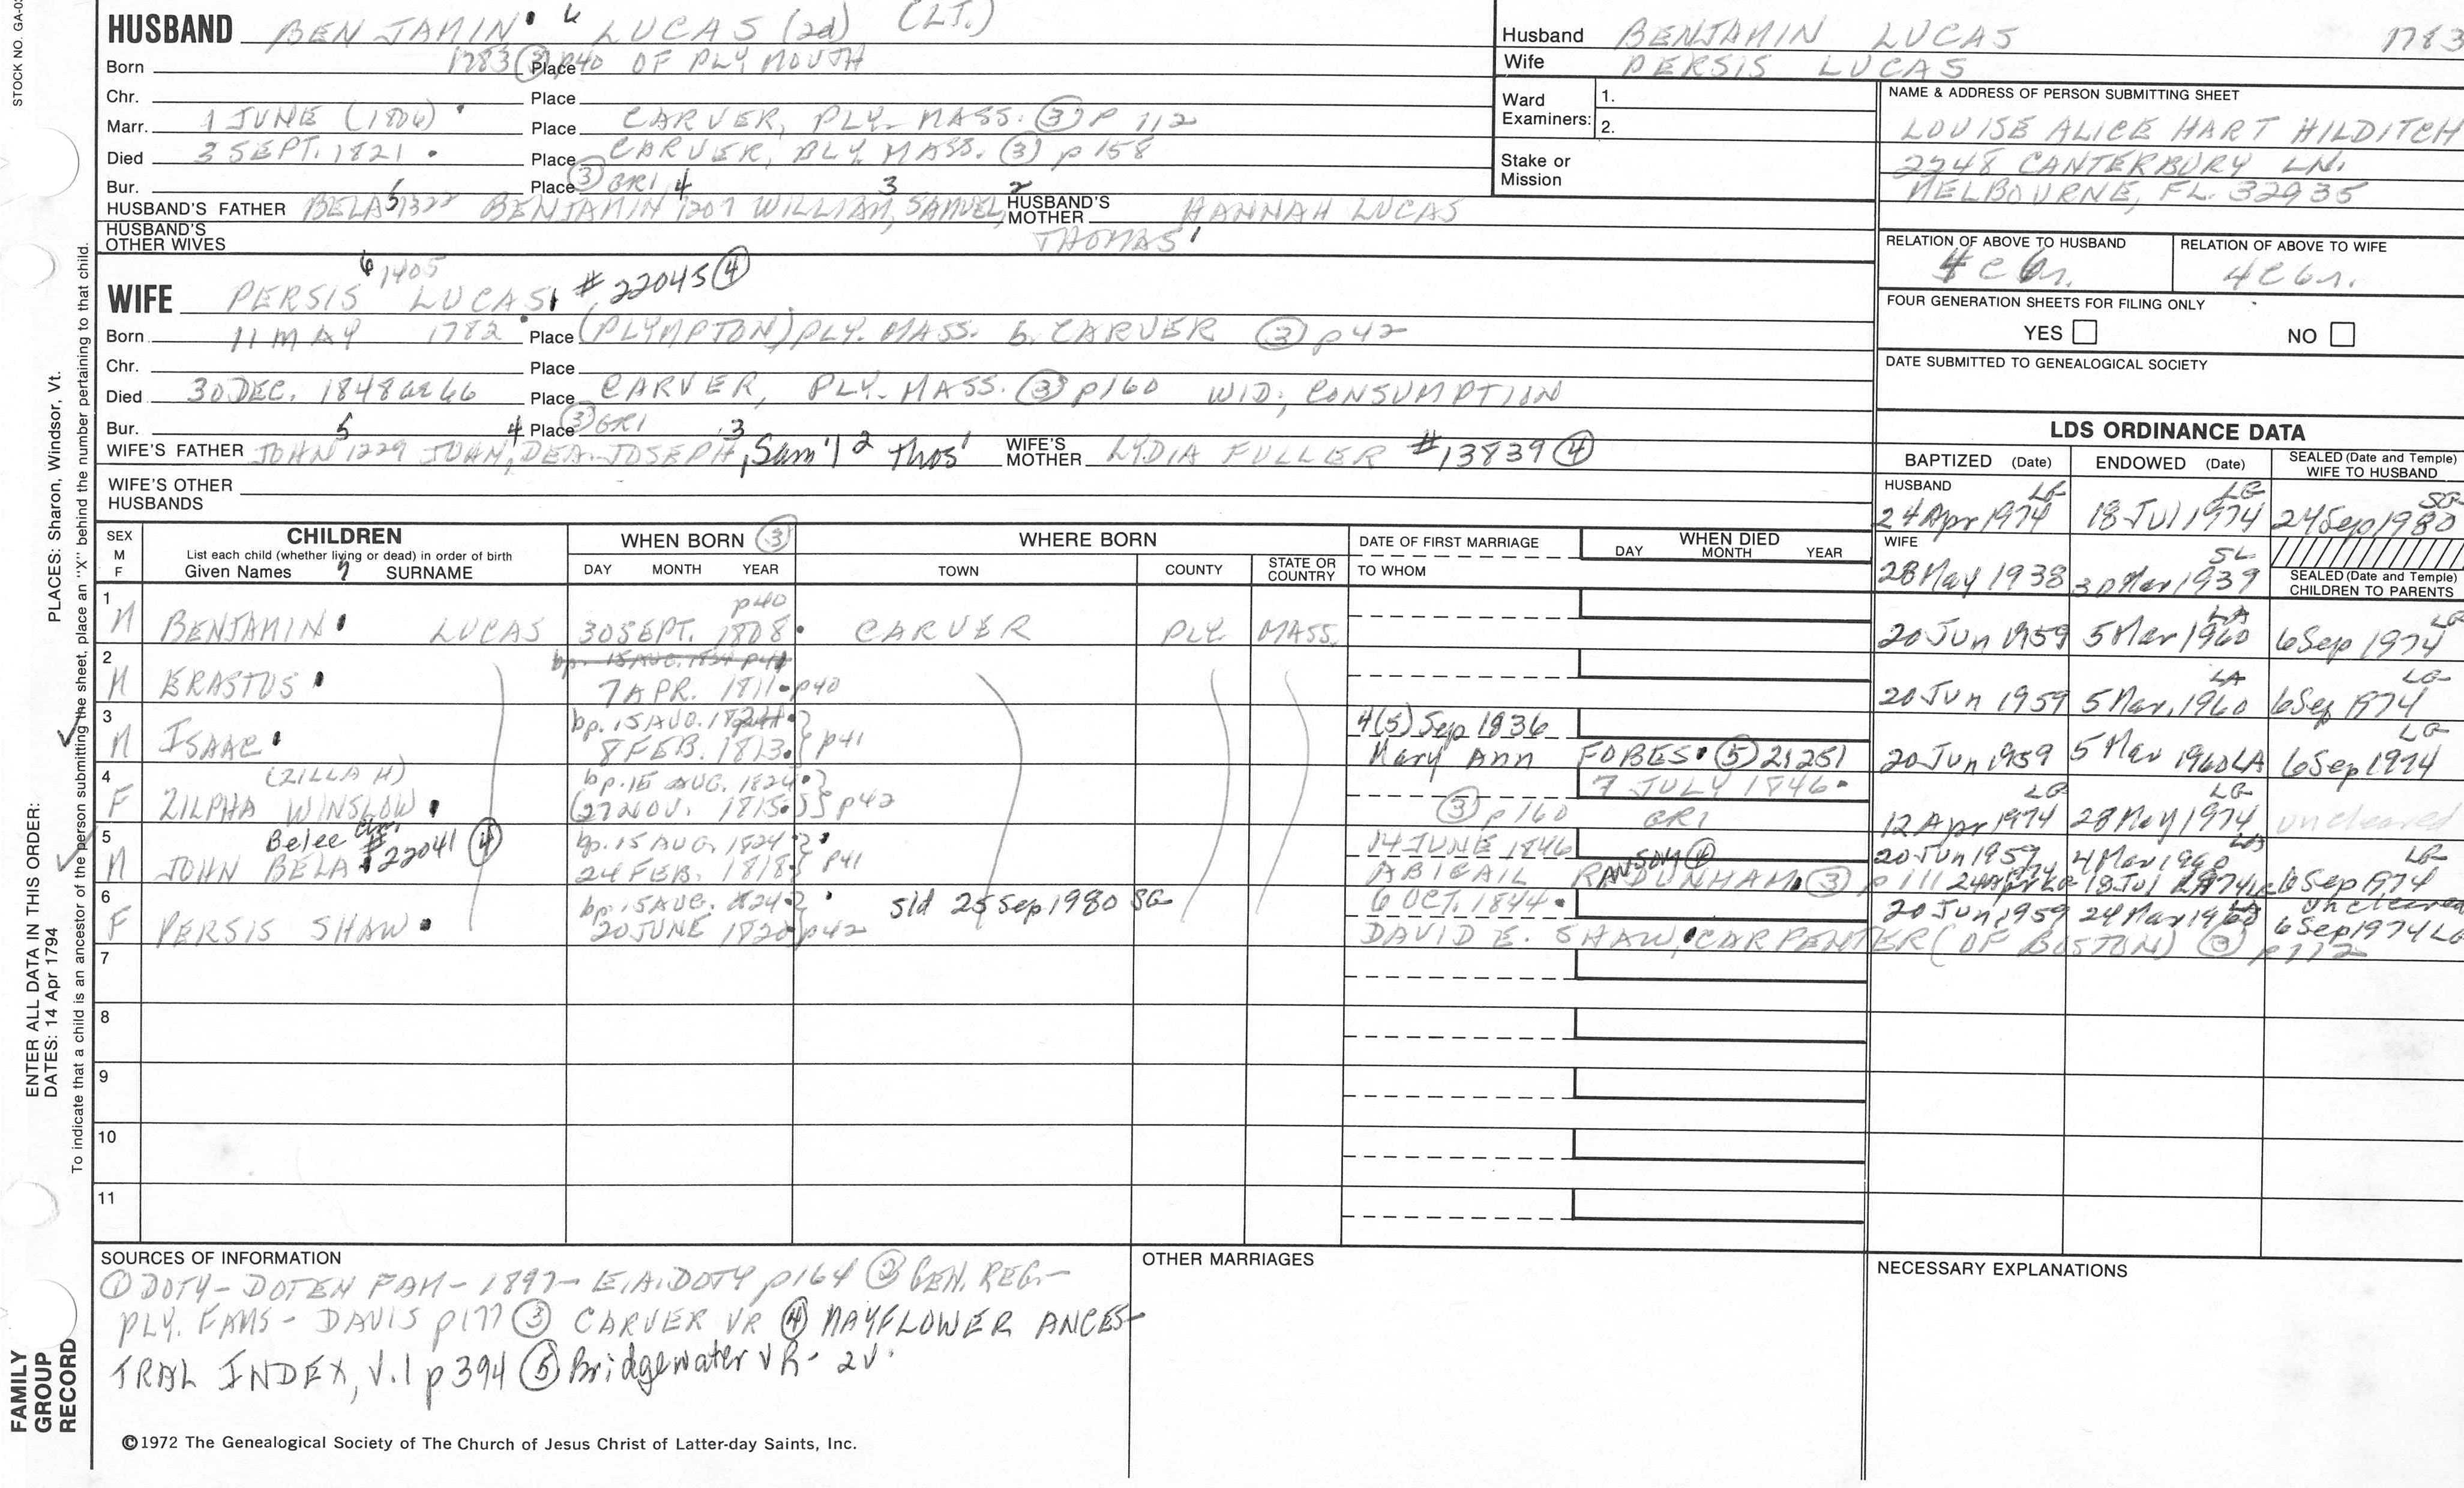 STOCK NO. GA-0
HUSBAND BENJAMIN 6 LUCAS (2d) (LT.)
Born 1783 (3) p40 Place OF PLYMOUTH
Chr. Place
Marr. 1 JUNE (1806) Place CARVER, PLY. MASS. (3) p 112
Died 3 SEPT. 1821 Place CARVER, PLY. MASS. (3) p 158
Bur. Place (3) GR1
HUSBAND'S FATHER BELA 5 1322 BENJAMIN 4 1207 WILLIAM, 3 SAMUEL, 2 THOMAS 1 HUSBAND'S MOTHER HANNAH LUCAS
HUSBAND'S OTHER WIVES
WIFE PERSIS 6 1405 LUCAS # 22045 (4)
Born 11 MAY 1782 Place (PLYMPTON) PLY. MASS. b. CARVER (3) p42
Chr. Place
Died 30 DEC. 1848 ae 66 Place CARVER, PLY. MASS. (3) p160 WID; CONSUMPTION
Bur. Place (3) GR1
WIFE'S FATHER JOHN 5 1229 JOHN, 4 DEA. JOSEPH 3, Sam'l 2 Thos' WIFE'S MOTHER LYDIA FULLER #13839 (4)
WIFE'S OTHER HUSBANDS
Husband BENJAMIN LUCAS 1783
Wife PERSIS LUCAS
Ward Examiners: 1.
2.
Stake or Mission
NAME & ADDRESS OF PERSON SUBMITTING SHEET
LOUISE ALICE HART HILDITCH
2248 CANTERBURY LN.
MELBOURNE, FL. 32935
RELATION OF ABOVE TO HUSBAND RELATION OF ABOVE TO WIFE
4 C 6r. 4 C 6r.
FOUR GENERATION SHEETS FOR FILING ONLY
YES NO
DATE SUBMITTED TO GENEALOGICAL SOCIETY
LDS ORDINANCE DATA
BAPTIZED (Date) ENDOWED (Date) SEALED (Date and Temple) WIFE TO HUSBAND
HUSBAND LG LG SG
24 Apr 1974 18 Jul 1974 24 Sep 1980
WIFE SL
28 May 1938 30 Mar 1939
SEALED (Date and Temple) CHILDREN TO PARENTS
SEX M F CHILDREN WHEN BORN (3) WHERE BORN DATE OF FIRST MARRIAGE WHEN DIED
List each child (whether living or dead) in order of birth
Given Names 7 SURNAME DAY MONTH YEAR TOWN COUNTY STATE OR COUNTRY TO WHOM DAY MONTH YEAR
1 p40 LA LG
M BENJAMIN LUCAS 30 SEPT. 1808 CARVER PLY. MASS. 20 Jun 1959 5 Mar 1960 6 Sep 1974
2 bp. 15 AUG. 1824 p41 LA LG
M ERASTUS 7 APR. 1811 p40 20 Jun 1959 5 Mar. 1960 6 Sep 1974
3 bp. 15 AUG. 1824 4(5) Sep 1836 LG
M ISAAC 8 FEB. 1813 p41 Mary Ann FOBES (5) 21251 20 Jun 1959 5 Mar 1960 LA 6 Sep 1974
4 (ZILLA H) bp. 15 AUG. 1824 7 JULY 1846 LG LG
F ZILPHA WINSLOW (27 NOV. 1815) p42 (3) p160 GR1 12 Apr 1974 28 May 1974 uncleared
5 Belee #22041 (4) bp. 15 AUG. 1824 14 JUNE 1846 RANSOM (4) 20 Jun 1959 4 Mar 1960 LG
M JOHN BELA 24 FEB. 1818 p41 ABIGAIL R. DUNHAM (3) p 111 18 Jul 1974 6 Sep 1974
6 bp. 15 AUG. 1824 sld 25 Sep 1980 SG 6 OCT. 1844 20 Jun 1959 24 Mar 1960 uncleared
F PERSIS SHAW 20 JUNE 1820 p42 DAVID E. SHAW, CARPENTER (OF BOSTON) (3) p112 6 Sep 1974 LG
7
8
9
10
11
SOURCES OF INFORMATION
(1) DOTY-DOTEN FAM - 1897 - E.A. DOTY p164 (2) GEN. REG.-
PLY. FAMS - DAVIS p177 (3) CARVER VR (4) MAYFLOWER ANCES-
TRAL INDEX, V.1 p394 (5) Bridgewater VR - 2v.
OTHER MARRIAGES
NECESSARY EXPLANATIONS
©1972 The Genealogical Society of The Church of Jesus Christ of Latter-day Saints, Inc.
FAMILY GROUP RECORD
ENTER ALL DATA IN THIS ORDER:
DATES: 14 Apr 1794
PLACES: Sharon, Windsor, Vt.
To indicate that a child is an ancestor of the person submitting the sheet, place an "X" behind the number pertaining to that child.